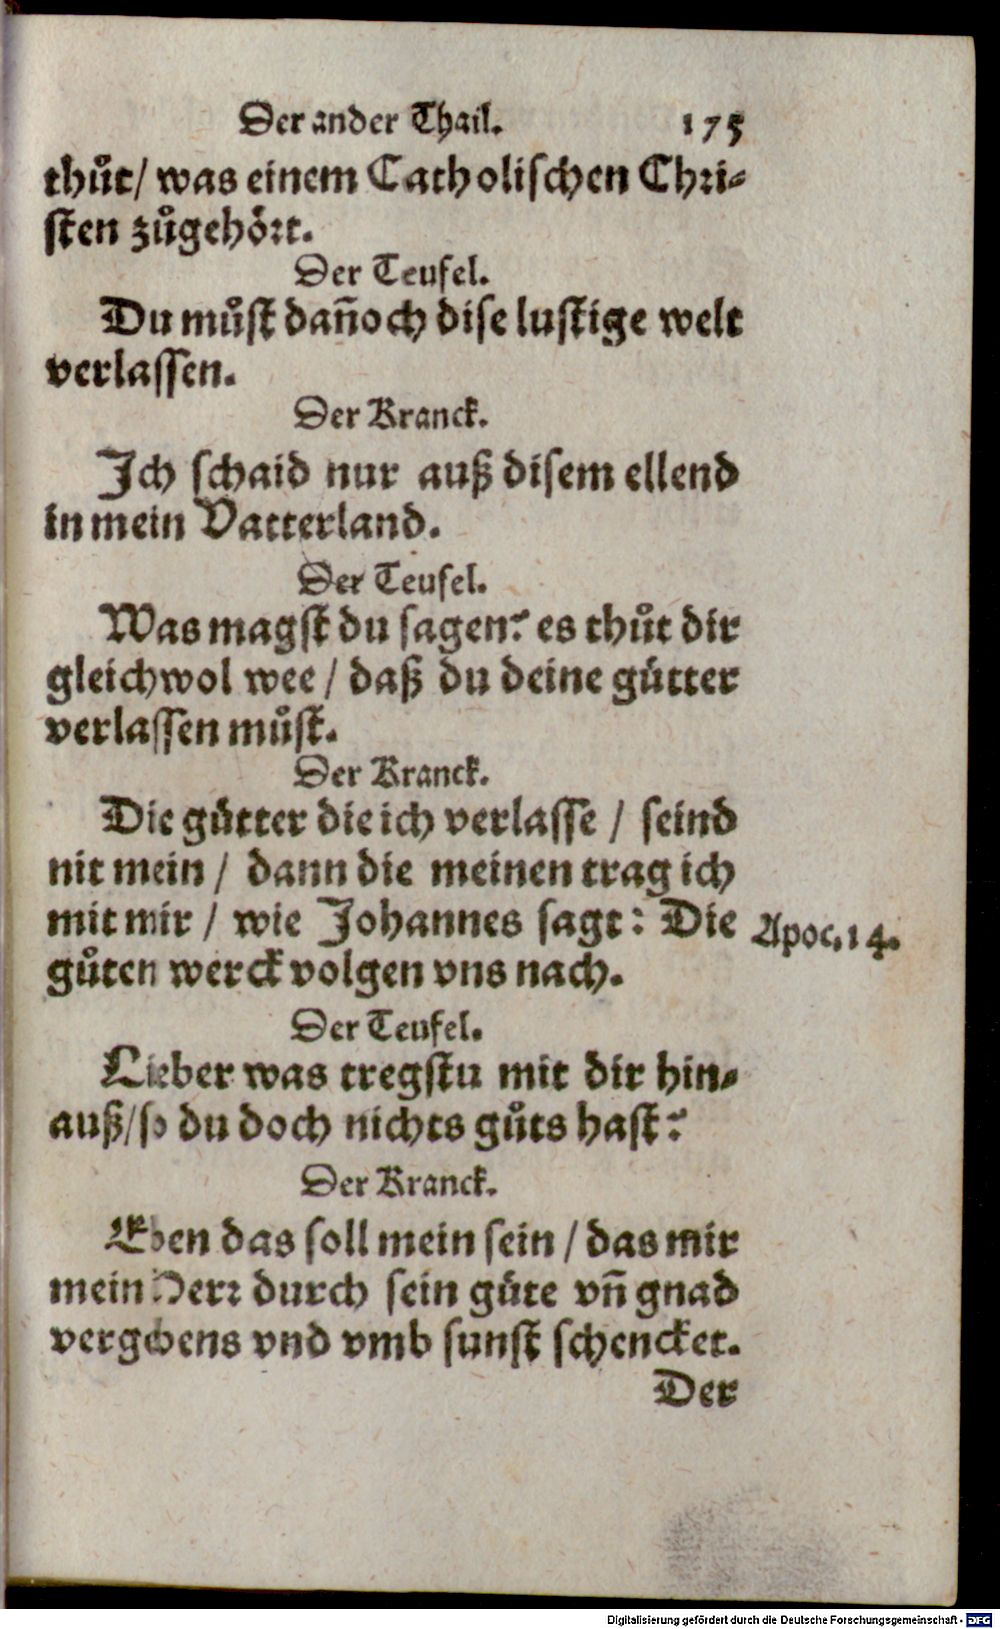 Der ander Thail. 175
thůt/ was einem Catholischen Chri-
sten zůgehört.
Der Teufel.
Du můst dañoch dise lustige welt
verlassen.
Der Kranck.
Ich schaid nur auß disem ellend
in mein Vatterland.
Der Teufel.
Was magst du sagen? es thůt dir
gleichwol wee / daß du deine gütter
verlassen můst.
Der Kranck.
Die gütter die ich verlasse / seind
nit mein / dann die meinen trag ich
mit mir / wie Johannes sagt: Die
Apoc. 14.
gůten werck volgen vns nach.
Der Teufel.
Lieber was tregstu mit dir hin-
auß/so du doch nichts gůts hast?
Der Kranck.
Eben das soll mein sein / das mir
mein Herr durch sein güte vñ gnad
vergebens vnd vmb sunst schencket.
Der
Digitalisierung gefördert durch die Deutsche Forschungsgemeinschaft - DFG